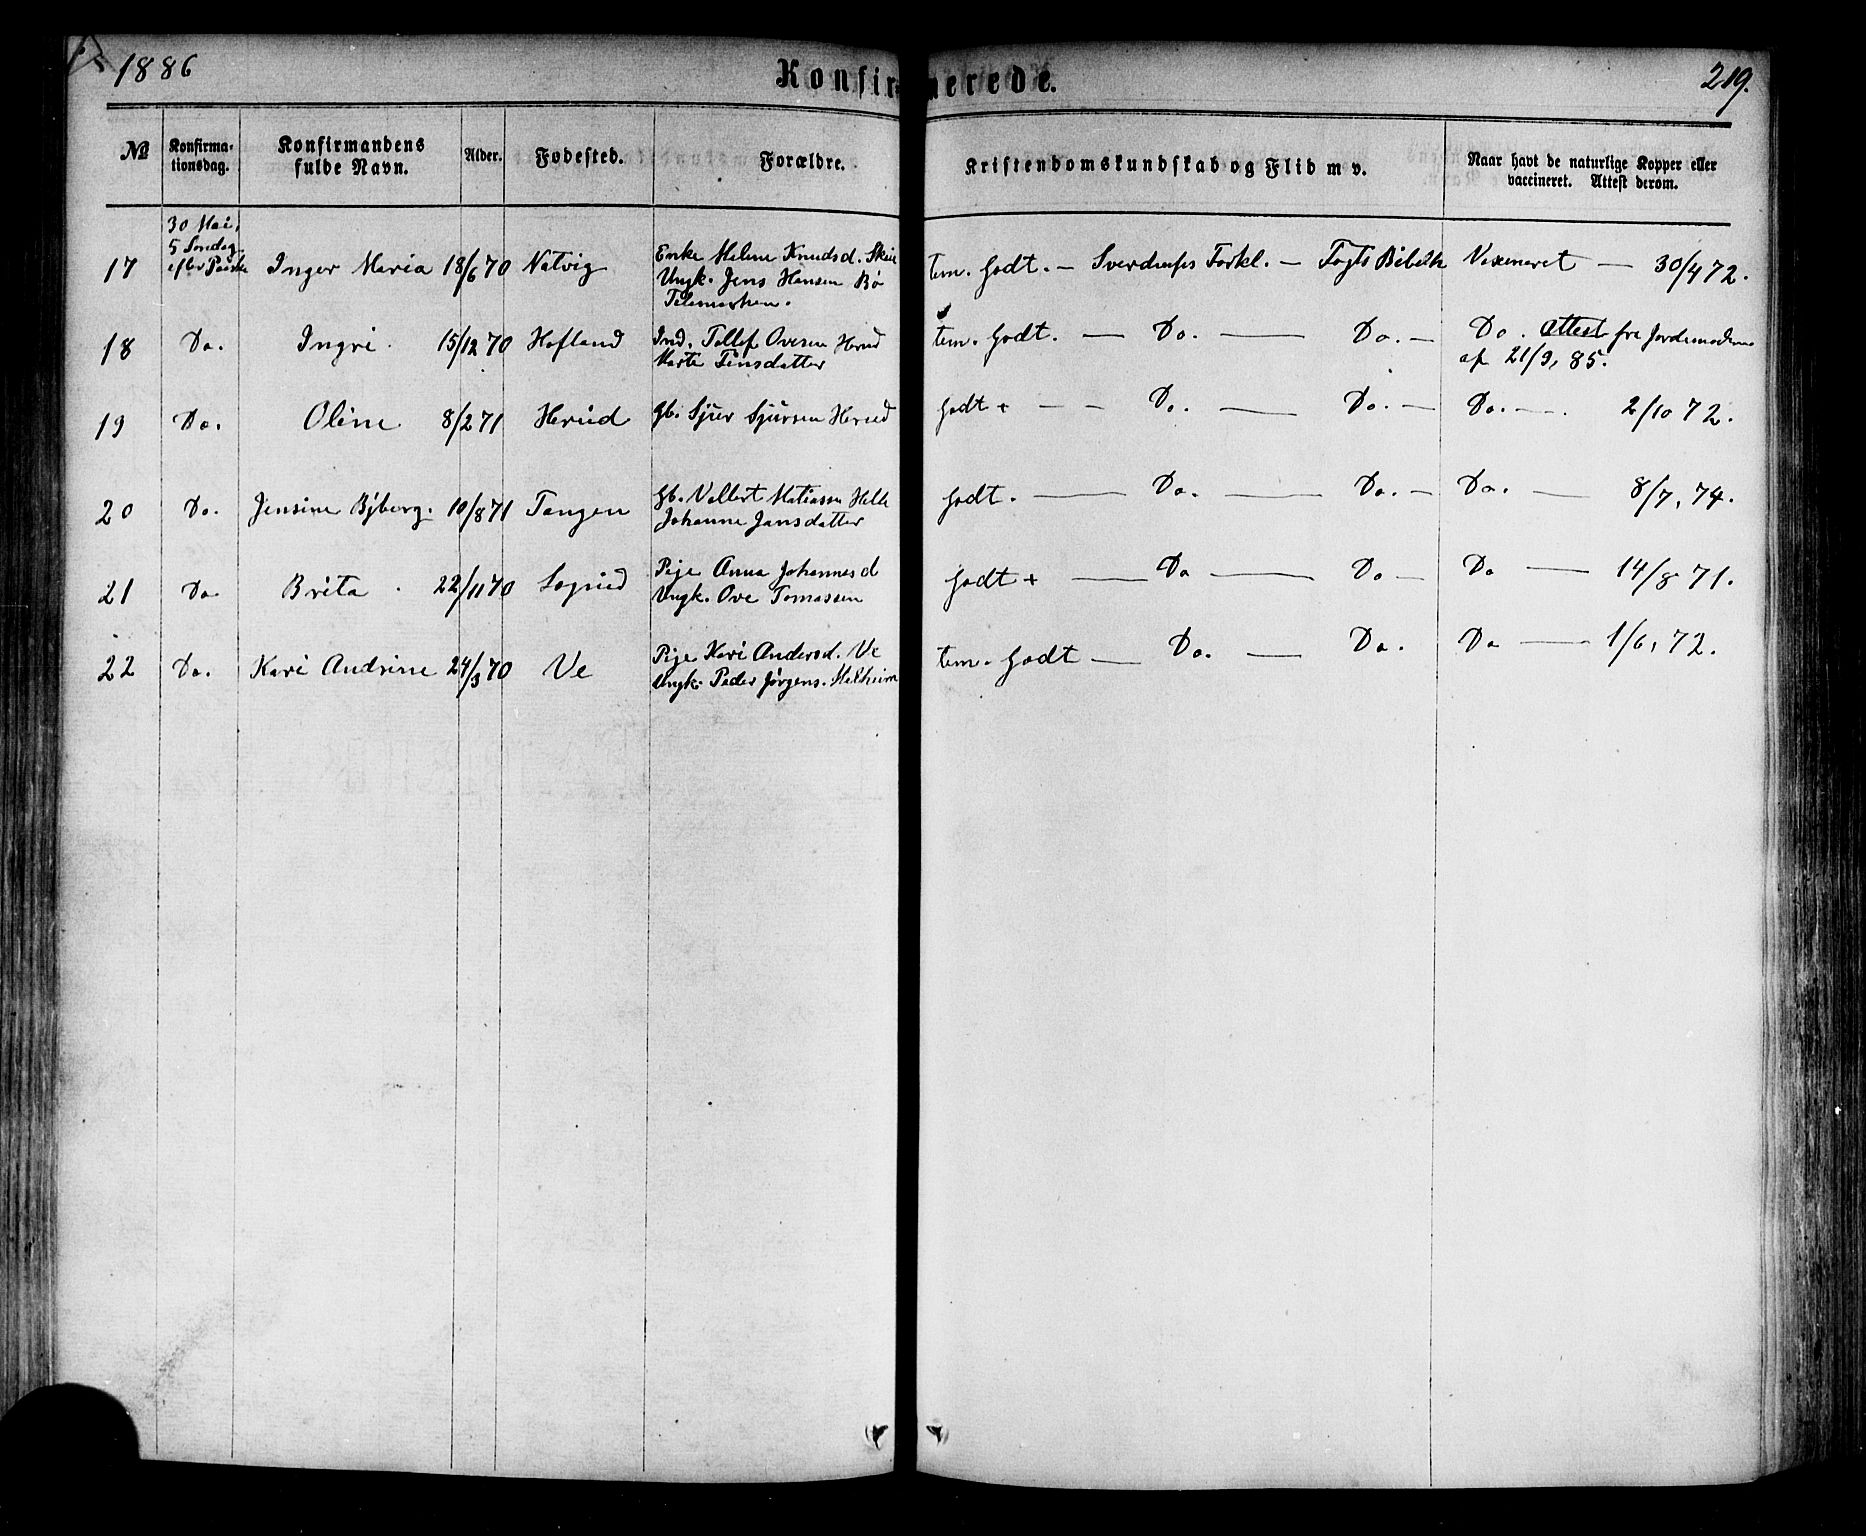 1886
Konfirmerede.
219.
№ Konfirma-tionsdag. Konfirmandens fulde Navn. Alder. Fødested. Forældre. Kristendomskundskab og Flid m v. Naar havt de naturlige Kopper eller vaccineret. Attest derom.
30 Mai,
5 Søndag
efter Paaske
17 Inger Maria 18/6 70 Natvig Enke Helene Knudsd. Skei tem. godt. — Sverdrups Forkl. — Fogts Bibelh Vaxineret — 30/4 72.
Ungk. Jens Hansen Bø
Telemarken.
18 Do. Ingri. 15/12 70 Hofland Ind. Tollef Ovesen Herud tem. godt. — Do. — Do. — Do. Attest fra Jordemoderen
Marte Finsdatter af 21/9, 85.
19 Do. Oline 8/2 71 Herud Gb. Sjur Sjursen Herud godt + — — Do. — Do. — Do. — 2/10 72.
20 Do. Jensine Byberg. 10/8 71 Tangen Gb. Vallert Matiassen Helle godt. — Do. — Do. — Do. — 8/7, 74.
Johanne Jansdatter
21 Do Brita 22/11 70 Sognid Pige Anna Johannesd godt + — Do — Do — Do — 14/8 71.
Ungk. Ove Tomassen
22 Do. Kari Andrine 24/3 70 Ve Pige Kari Andersd. Ve tem. godt — Do. — Do. Do — 1/6, 72.
Ungk. Peder Jørgens. Melheim